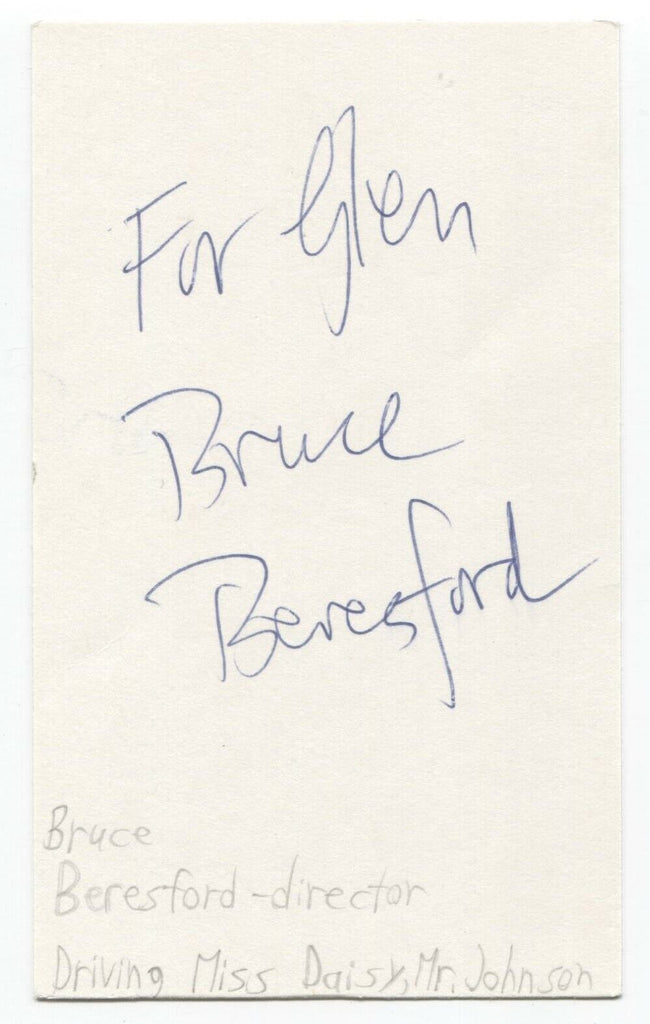 For Glen
Bruce
Beresford
Bruce
Beresford-director
Driving Miss Daisy, Mr. Johnson